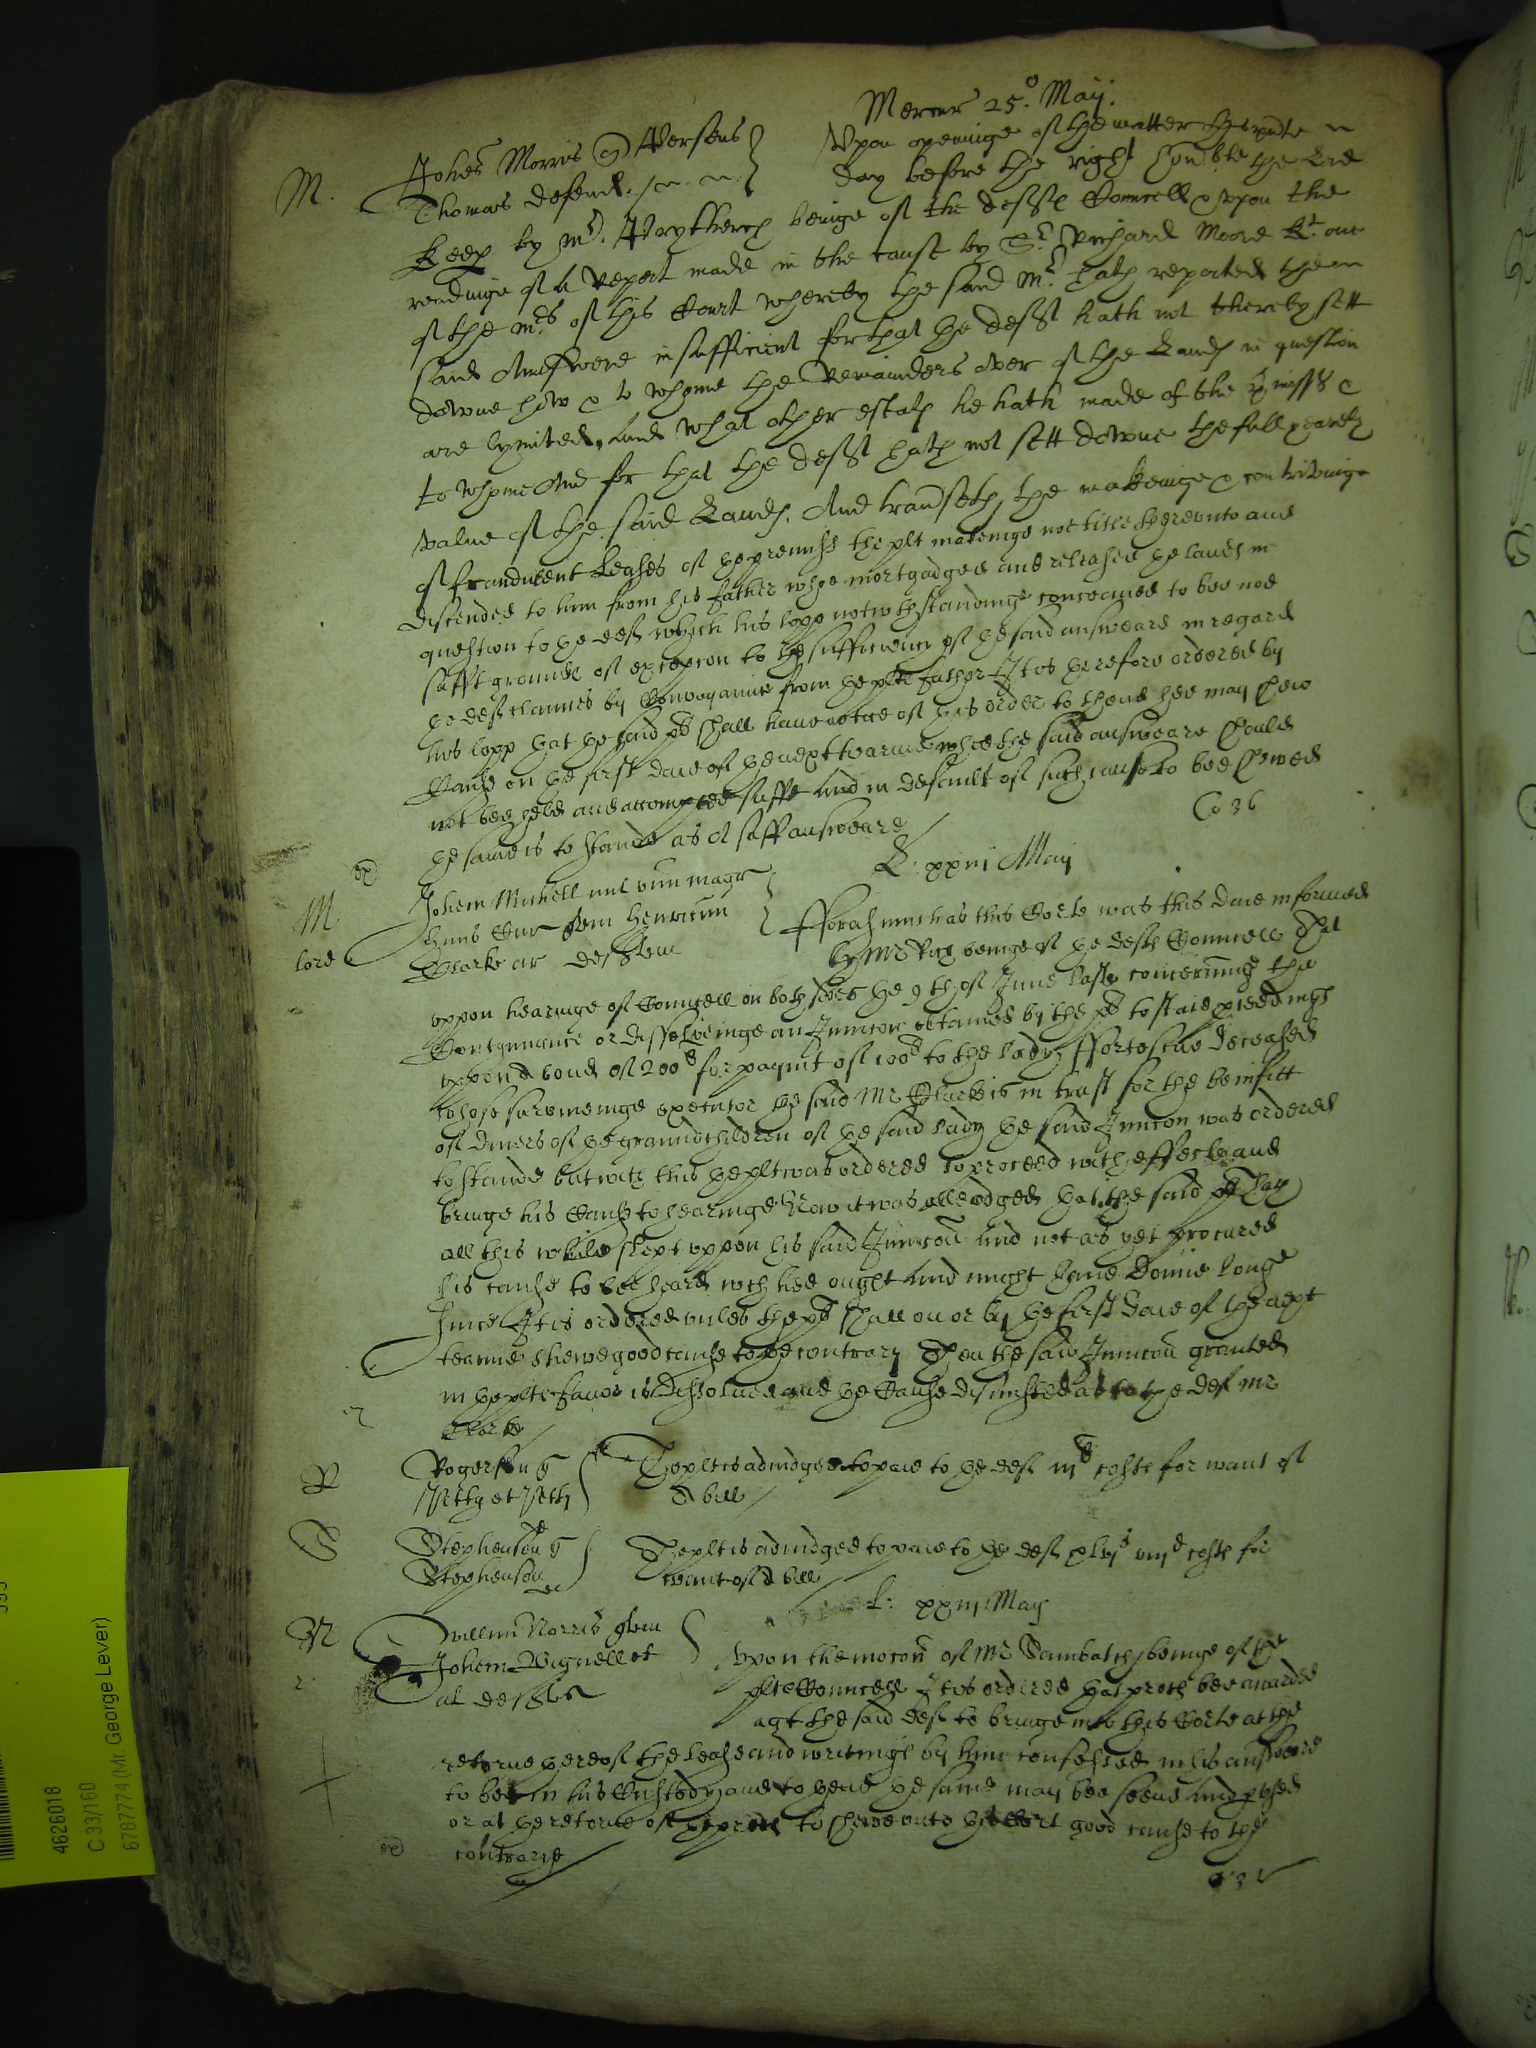 Mercur 25.o Maij.
M. Johes Morris Persens
Thomas defend.
Upon openinge of the matter this pnte
day before the right honble the Lord
Keep by Mr. beinge of the deftes Councell & upon the
readinge of a Report made in the cause by Sr. Richard Moore Kt. one
of the Mrs of this Court whereby the said Mr. hath reported the
said Answere insufficient for that the deft hath not thereby sett
downe how & to whome the Remainders over of the Landes in question
are lymited, And what other estate he hath made of the pmisses &
to whome And for that the deft hath not sett downe the full yearely
value of the said Landes. And the makeinge & contrivinge
of fraudulent Leases of the premisses the plt makeinge noe title thereunto and
discended to him from his father whoe mortgadged and released the landes in
question to the deft which his lopp notwthstandinge conceaved to bee noe
sufft grounde of excepcon to the sufficiencie of the said answeare in regard
the deft claimes by Conveyance from the pltes father It is therefore ordered by
his lopp that the said plt shall have notice of this order to thend hee may shew
Cause on the first daie of the next tearme whie the said answeare should
not bee held and accompted sufft And in default of such cause to bee shewed
the same is to stande as a suff answeare
Co 36
L. xxiij May
M
lord
Johem Michell unum magr
huius Cur quem Henricum
Clarke ar defftem
Fforasmuch as this Corte was this daie informed
by Mr beinge of the deftes Councell That
uppon hearinge of Councell on both sides the 9th of June last concerninge the
Contynuance or dissolveinge an Iniuncon obtained by the plt to staie pceedinges
uppon a bond of 200l for paymt of 100l to the lady Ffortescue deceased
whose surviveinge executor the said Mr Clarke is in trust for the benifitt
of divers of the grandchildren of the said lady the said Iniuncon was ordered
to stande but with this the plt was ordered to proceed with effecte and
bringe his Cause to hearinge Now it was alledged that the said plt hath
all this while slept uppon his said Iniuncon And not as yet procured
his cause to bee heard wch hee ought And might have donne longe
since It is ordered unles the plt shall on or by the first daie of the next
tearme shewe good cause to the contrary Then the said Iniuncon granted
in the pltes favor is dissolved and the Cause dismissed as to the def Mr
Clarke
R
Rogerson q
The plt is adiudged to paie to the deft costes for want of
a bill
S
Stephenson q
Stephenson
The plt is adiudged to paie to the deft costes for
want of a bill
L: xxiij May
N
Willm Norris quem
Johem Bignell et
al deftes
Upon the mocon of Mr Sambatch beinge of the
pltes Councell It is ordered that proces bee awarded
agt the said deft to bringe into this Corte at the
retorne thereof the lease and writinges by him confessed in his answeare
to bee in his Custody and to thend the same may bee seene And pused
or at the retorne of the proces to shewe unto this Court good cause to the
contrarie
4626018
C 33/160
6787774 (Mr George Lever)